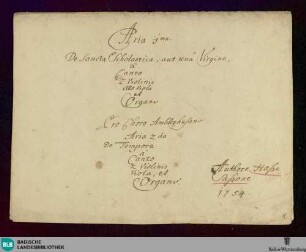 Aria 1ma
De Sancta Scholastica, aut una Virgine,
à
Canto
2 Violinis
Alto Viola
et
Organo
Pro Choro
Aria 2da
De Tempore
à
Canto
2 Violinis
Viola, et
Organo
Authore Hasse
Sassone
1754
BLB
BADISCHE
LANDESBIBLIOTHEK
Baden-Württemberg